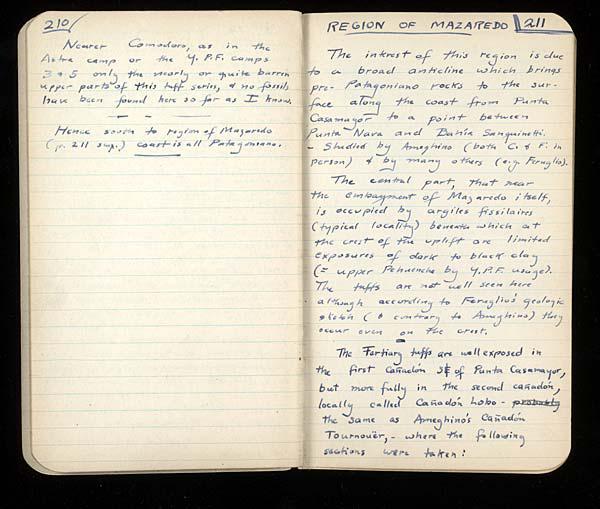 210
Nearer Comodoro, as in the
Astra camp or the Y.P.F. camps
3 & 5 only the nearly or quite barren
upper parts of this tuff series, & no fossils
have been found here so far as I know.
Hence south to region of Mazaredo
(p. 211 seq.) coast is all Patagoniano.
REGION OF MAZAREDO 211
The interest of this region is due
to a broad anticline which brings
pre-Patagoniano rocks to the sur-
face along the coast from Punta
Casamayor to a point between
Punta Nava and Bahía Sanguinetti.
- Studied by Ameghino (both C. & F. in
person) & by many others (e.g. Feruglio).
The central part, that near
the embayment of Mazaredo itself,
is occupied by argiles fissilaires
(typical locality) beneath which at
the crest of the uplift are limited
exposures of dark to black clay
(= upper Pehuenche by Y.P.F. usage).
The tuffs are not well seen here
although according to Feruglio's geologic
sketch (& contrary to Ameghino) they
occur even on the crest.
The Tertiary tuffs are well exposed in
the first Cañadón SE of Punta Casamayor,
but more fully in the second cañadón,
locally called Cañadón Lobo - probably
the same as Ameghino's Cañadón
Tournouër, - where the following
sections were taken: